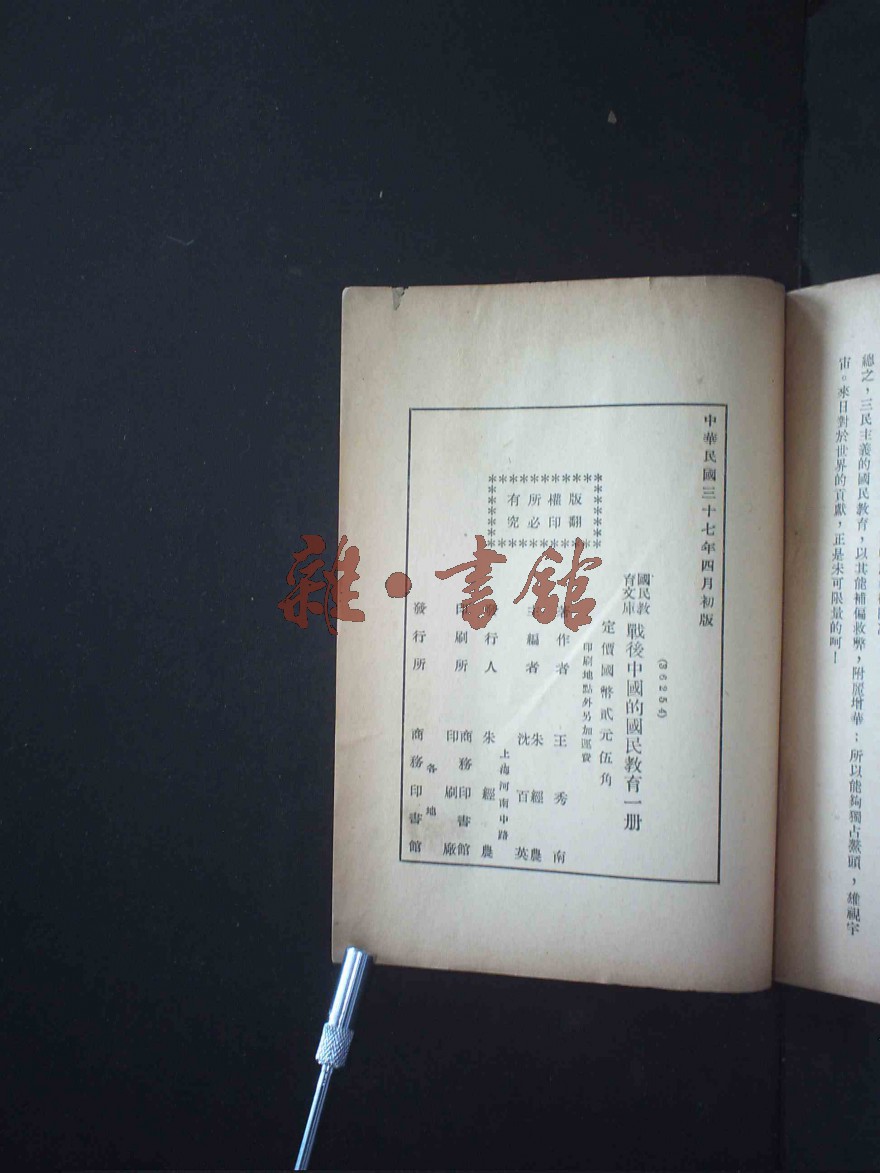 總之，三民主義的國民教育，以其能補偏救弊，附麗增華；所以能夠獨占鰲頭，雄視宇
宙。來日對於世界的貢獻，正是未可限量的呵！
中華民國三十七年四月初版
(36254)
國民教育文庫 戰後中國的國民教育一册
定價國幣貳元伍角
印刷地點外另加運費
版權所有
翻印必究
著作者 王秀南
主編者 朱經農
沈百英
上海河南中路
發行人 朱經農
印刷所 商務印書館
印刷廠
各地
發行所 商務印書館
雜·書館